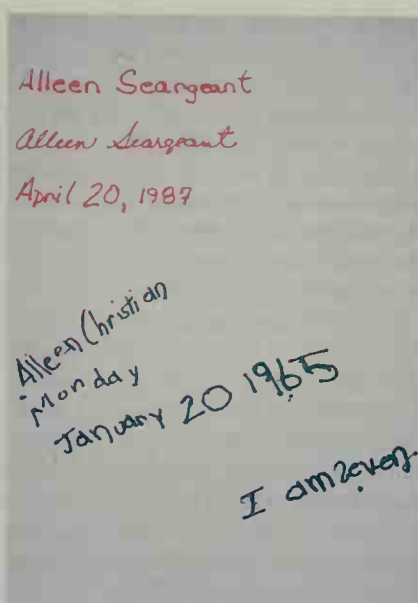 Alleen Seargeant
Alleen Seargeant
April 20, 1987
Alleen Christian
Monday
January 20 1965
I am seven.